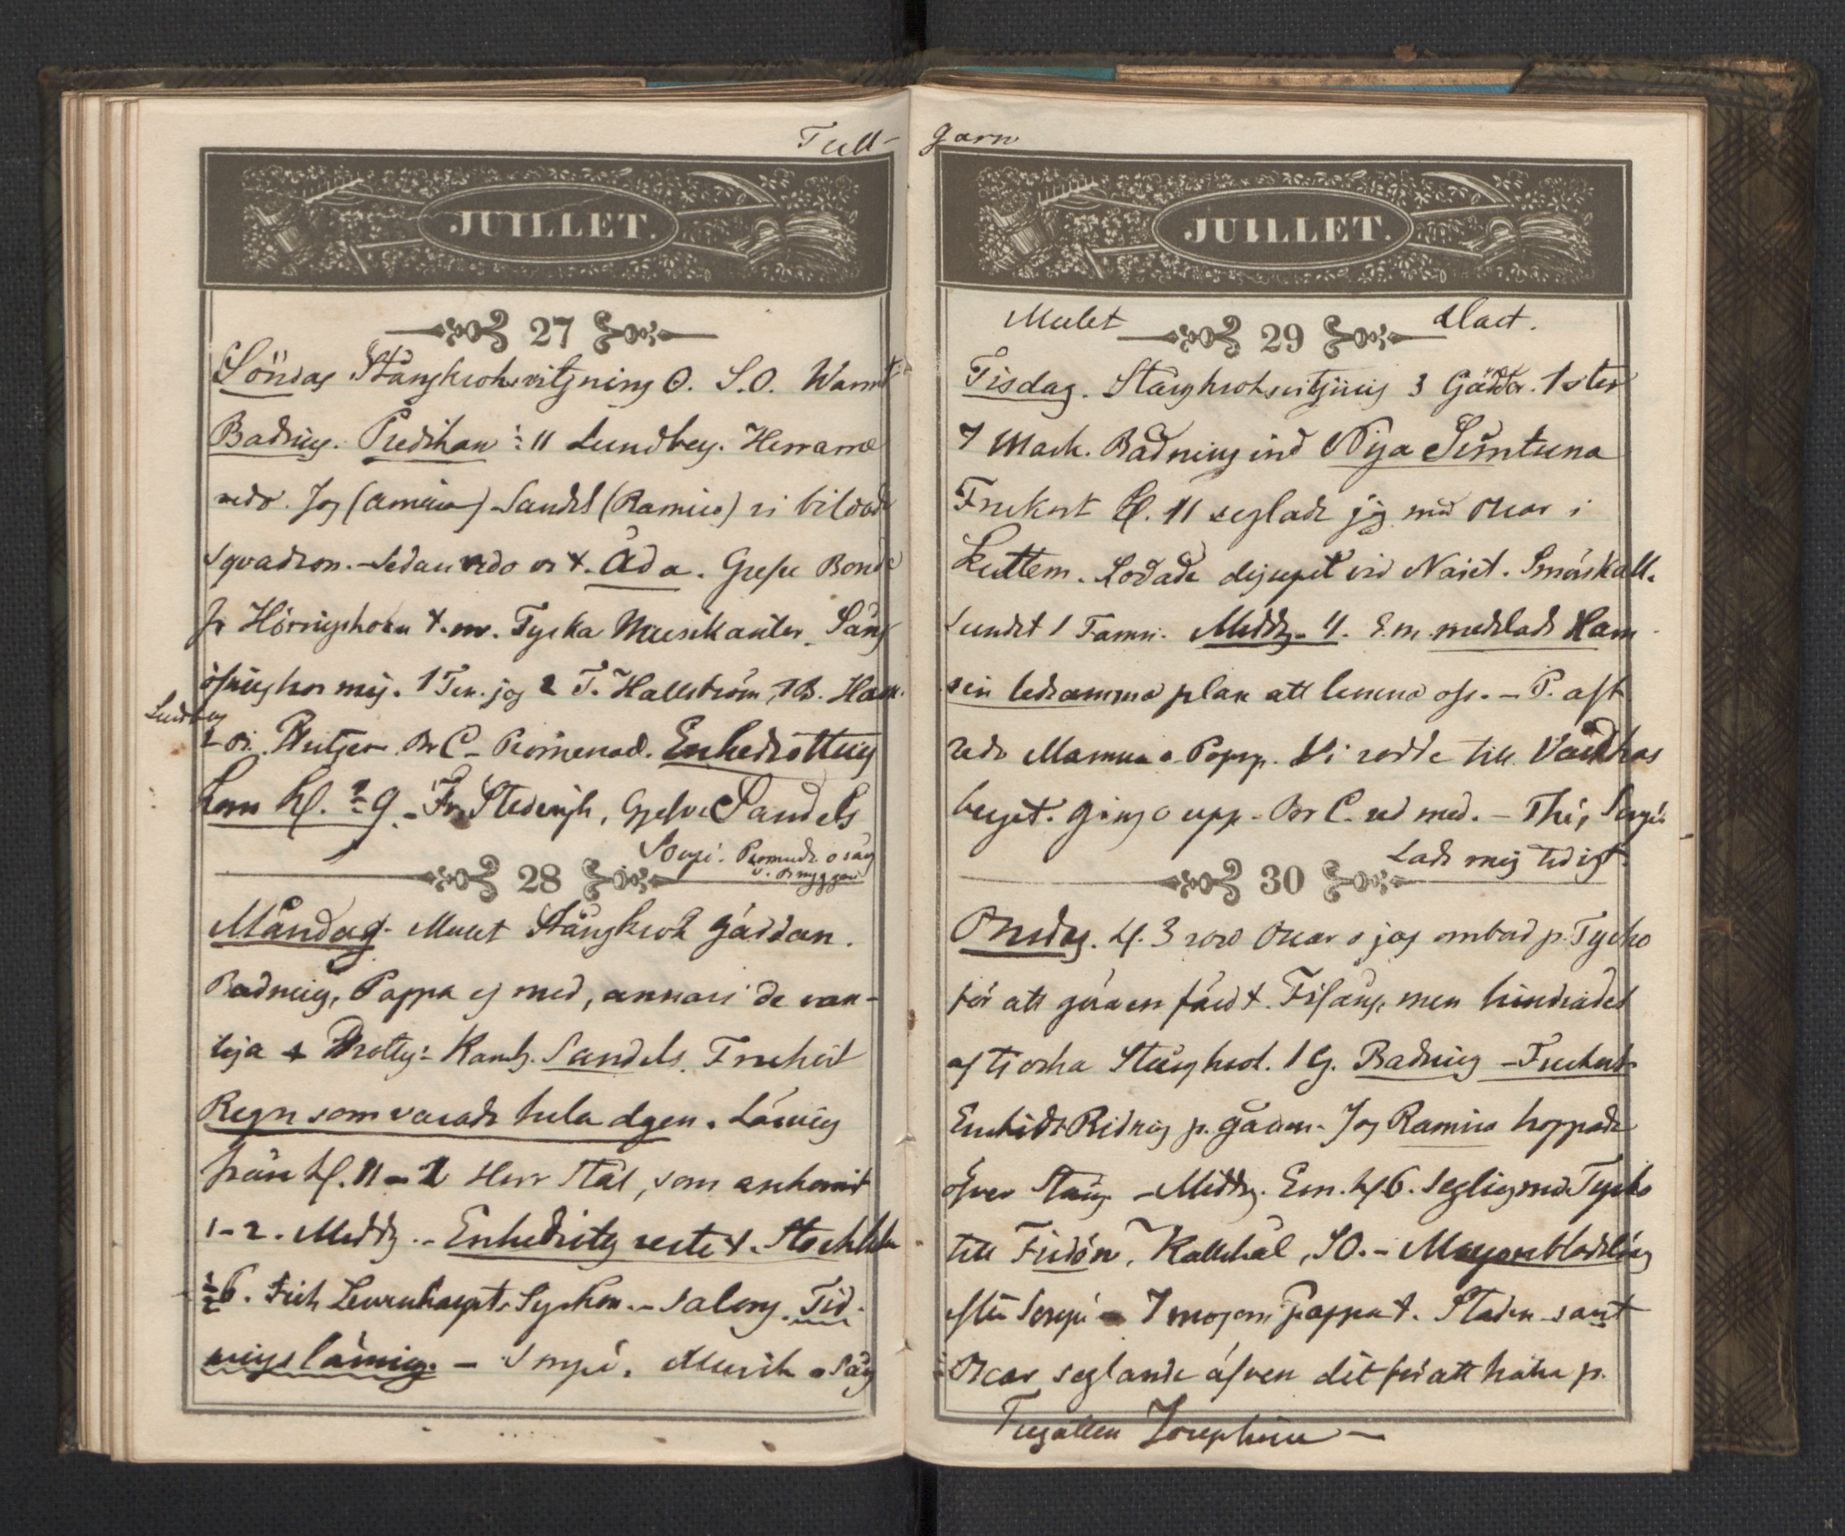 Tull-
JUILLET.
27
Söndag Stångkroksvitjning 0. S.O. Warmt
Badning. Predikan ½ 11 Lundberg. Herrarne
redo. Jag (Amina) Sandels (Ramiro) vi bildade
sqvadron. - Sedan redo vi t. Åda. Grefve Bonde
fr Hörningsholm t. m. Tyska Musikanter. Sång
öfning hos mig. 1 Ten. jag 2 T. Hallström, 1 B. Ham.
Lundberg
2
Br C - Promenad. Enkedrottning
kom kl. ½ 9. - Fr. Stedingk, Grefve Sandels
Soupé. Promenade o sång
v. Bryggan
28
Måndag. Mulet Stångkrok gäddan.
Badning, Pappa ej med, annars de van-
liga + Drottg: Kamh. Sandels. Frukost
Regn som varade hela dagen. Läsning
från kl. 11 - 1 Herr Stål, som ankomit
1-2. Middg. - Enkedrotg reste t. Stockholm
½ 6. Lewenhaupts Syskon. - Salong. Tid-
ningsläsning. - Soupé. Musik o Sång
garn
JUILLET.
Mulet 29 Blåst.
Tisdag. Stångkroksvitjning 3 Gäddor. 1 stor
7 Mark. Badning vid Nya Simtuna
Frukost Kl. 11 seglade jag med Oscar i
Kuttern. Lodade djupet vid Näset. Småskall-
sundet 1 Famn. Middg. 4. E.m. meddelade Ham
sin ledsamma plan att lemna oss. - P. aft
redo Mamma o Papp. Vi rodde till Vårdkas
berget. Gingo upp. Br C. red med. - Thé, Soupé
Lade mig tidigt.
30
Onsdag. Kl. 3 voro Oscar o jag ombord p. Tycho
för att göra en färd t. Fifång, men hindrades
af tjocka Stångkrok. 1 G. Badning - Frukost
Enskidt Ridning p. gården. Jag Ramiro hoppade
öfver stång - Middg. Em. kl 6. segling med Tycho
till Fridön, Kallehål, SO. - läsng
efter Soupé - I morgon Pappa t. Staden samt
Oscar seglande äfven dit för att helsa p.
Fregatten Josephine -